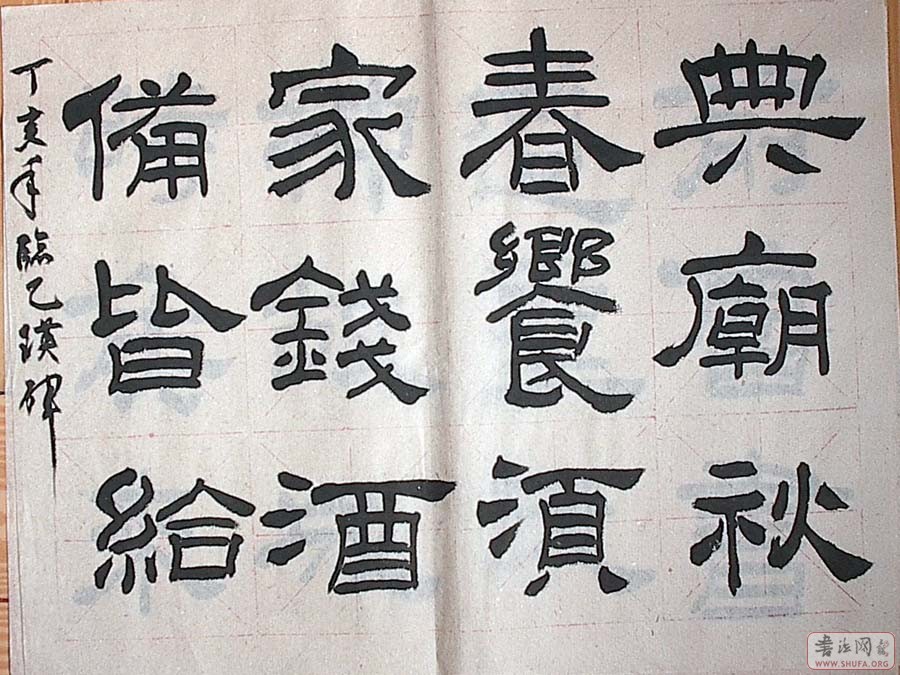 典廟秋
春饗湏
家錢酒
備皆給
丁亥年臨乙瑛碑
书法网
WWW.SHUFA.ORG